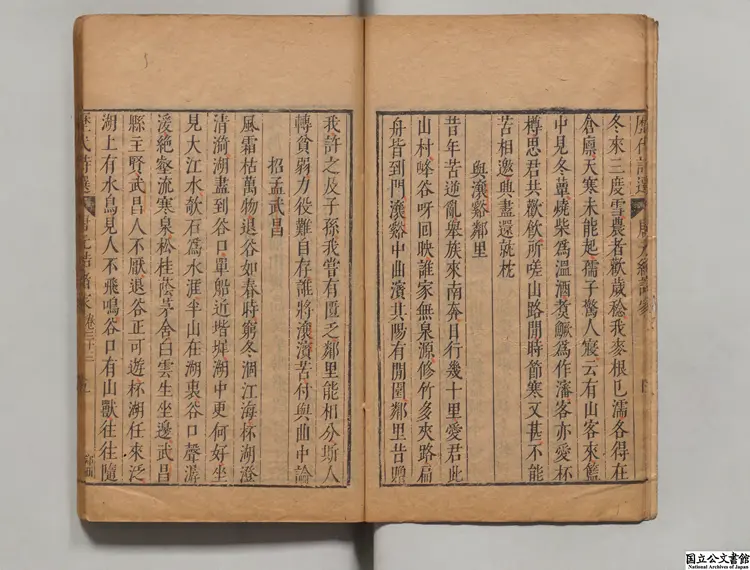 歷代詩選
冬來三度雪農者歡歲稔我麥根已濡各得在
倉廪天寒未能起孺子驚人寢云有山客來籃
中見冬蕈燒柴為溫酒煮鱖為作瀋客亦愛杯
樽思君共歡飲所嗟山路閒時節寒又甚不能
苦相邀興盡還就枕
與瀼谿鄰里
昔年苦逆亂舉族來南奔日行幾十里愛君此
山村峰谷呀回映誰家無泉源修竹多夾路扁
舟皆到門瀼谿中曲濱其陽有閒園鄰里昔贈
我許之及子孫我嘗有匱乏鄰里能相分斯人
轉貧弱力役難自存誰將瀼濱苦付與曲中論
招孟武昌
風霜枯萬物退谷如春時窮冬涸江海杯湖澄
清漪湖盡到谷口單船近堦墀湖中更何好坐
見大江水欹石為水涯半山在湖裏谷口聲潺
湲絕壑流寒泉松桂蔭茅舍白雲生坐邊武昌
縣主賢武昌人不厭退谷正可遊杯湖任來泛
湖上有水鳥見人不飛鳴谷口有山獸往往隨
歷代詩選 卷三十二 五
国立公文書館
National Archives of Japan